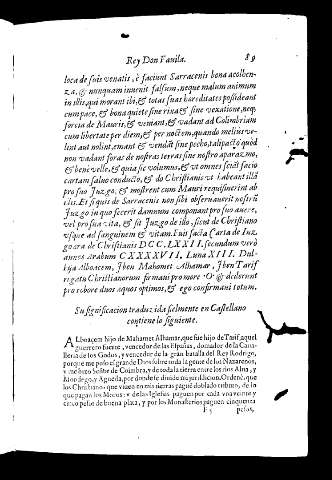 Rey Don Fauila. 89
loca de sois venatis, è faciunt Sarracenis bona acolhen-
za, & nunquam inuenit falsum, neque malum animum
in illis, qui morant ibi, & totas suas haereditates possideant
cum pace, & bona quiete sine rixa & sine vexatione, neq;
forcia de Mauris, & vemant, & vadant ad Colimbriam
cum libertate per diem, & per noctem, quando melius ve-
lint aut nolint, emant & vendãt sine pecho, tali pacto quod
non vadant foras de nostras terras sine nostro aparazmo,
& bene velle, & quia sic volumus, & vt omnes sciãt facio
cartam saluo conducto, & do Christianis vt habeant illã
pro suo Juzgo, & mostrent cum Mauri requisuerint ab
eis. Et si quis de Sarracenis non sibi obseruauerit nostrũ
Juzgo in quo fecerit damnum componant pro suo auere,
vel pro sua vita, & sit Juzgo de illo, sicut de Christiano
vsque ad sanguinem & vitam. Fuit facta Carta de Juz-
go æra de Christianis DCC.LXXII. secundum verò
annos Arabum CXXXXVII, Luna XIII. Dul-
hija Alboacem, Jben Mahomet Alhamar, Jben Tarif
rogatu Christianorum firmaui pro more O & dederunt
pro robore duos equos optimos, & ego confirmaui totum.
Su significacion traduzida fielmente en Castellano
contiene lo siguiente.
Alboacem hijo de Mahamet Alhamar, que fue hijo de Tarif, aquel
guerrero fuerte, vencedor de las Españas, domador de la Caua-
lleria de los Godos, y vencedor de la gran batalla del Rey Rodrigo,
porque me puso el grande Dios sobre toda la gente de los Nazarenos,
y me hizo Señor de Coimbra, y de toda la tierra entre los rios Alua, y
Mondego, y Agueda, por donde se diuide mi jurisdiccion. Ordenè, que
los Christianos, que viuen en mis tierras paguẽ doblado tributo, de lo
que pagan los Moros: y de las Iglesias paguen por cada vna veinte y
cinco pesos de buena plata, y por los Monasterios paguen cinquenta
F 5 pesos,